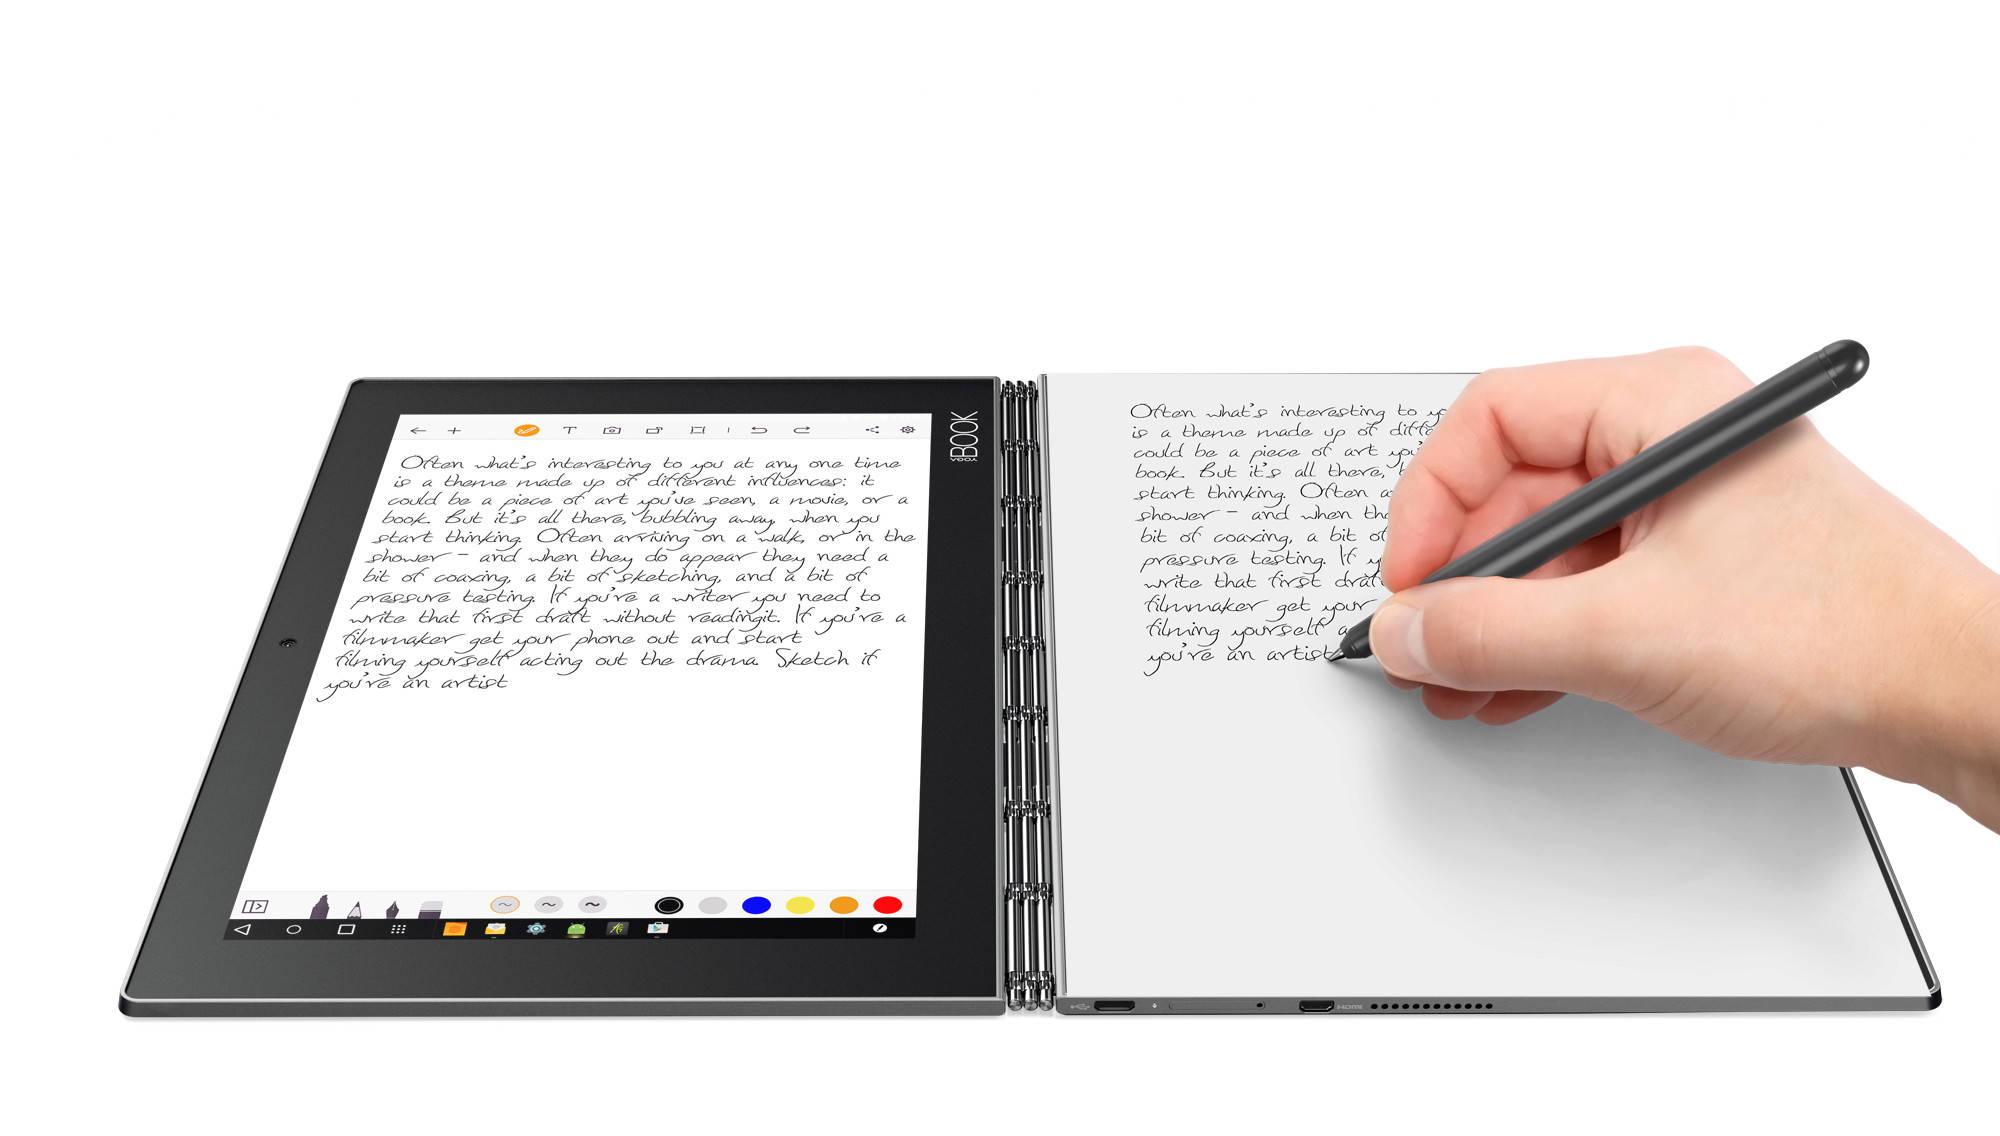 Often what's interesting to you at any one time
is a theme made up of different influences: it
could be a piece of art you've seen, a movie, or a
book. But it's all there, bubbling away, when you
start thinking. Often arriving on a walk, or in the
shower - and when they do appear they need a
bit of coaxing, a bit of sketching, and a bit of
pressure testing. If you're a writer you need to
write that first draft without readingit. If you're a
filmmaker get your phone out and start
filming yourself acting out the drama. Sketch if
you're an artist
YOGA BOOK
Often what's interesting to
is a theme made up of
could be a piece of art
book. But it's all there,
start thinking. Often
shower - and when
bit of coaxing, a bit of
pressure testing. If
write that first
filmmaker get your
filming yourself
you're an artist
HDMI